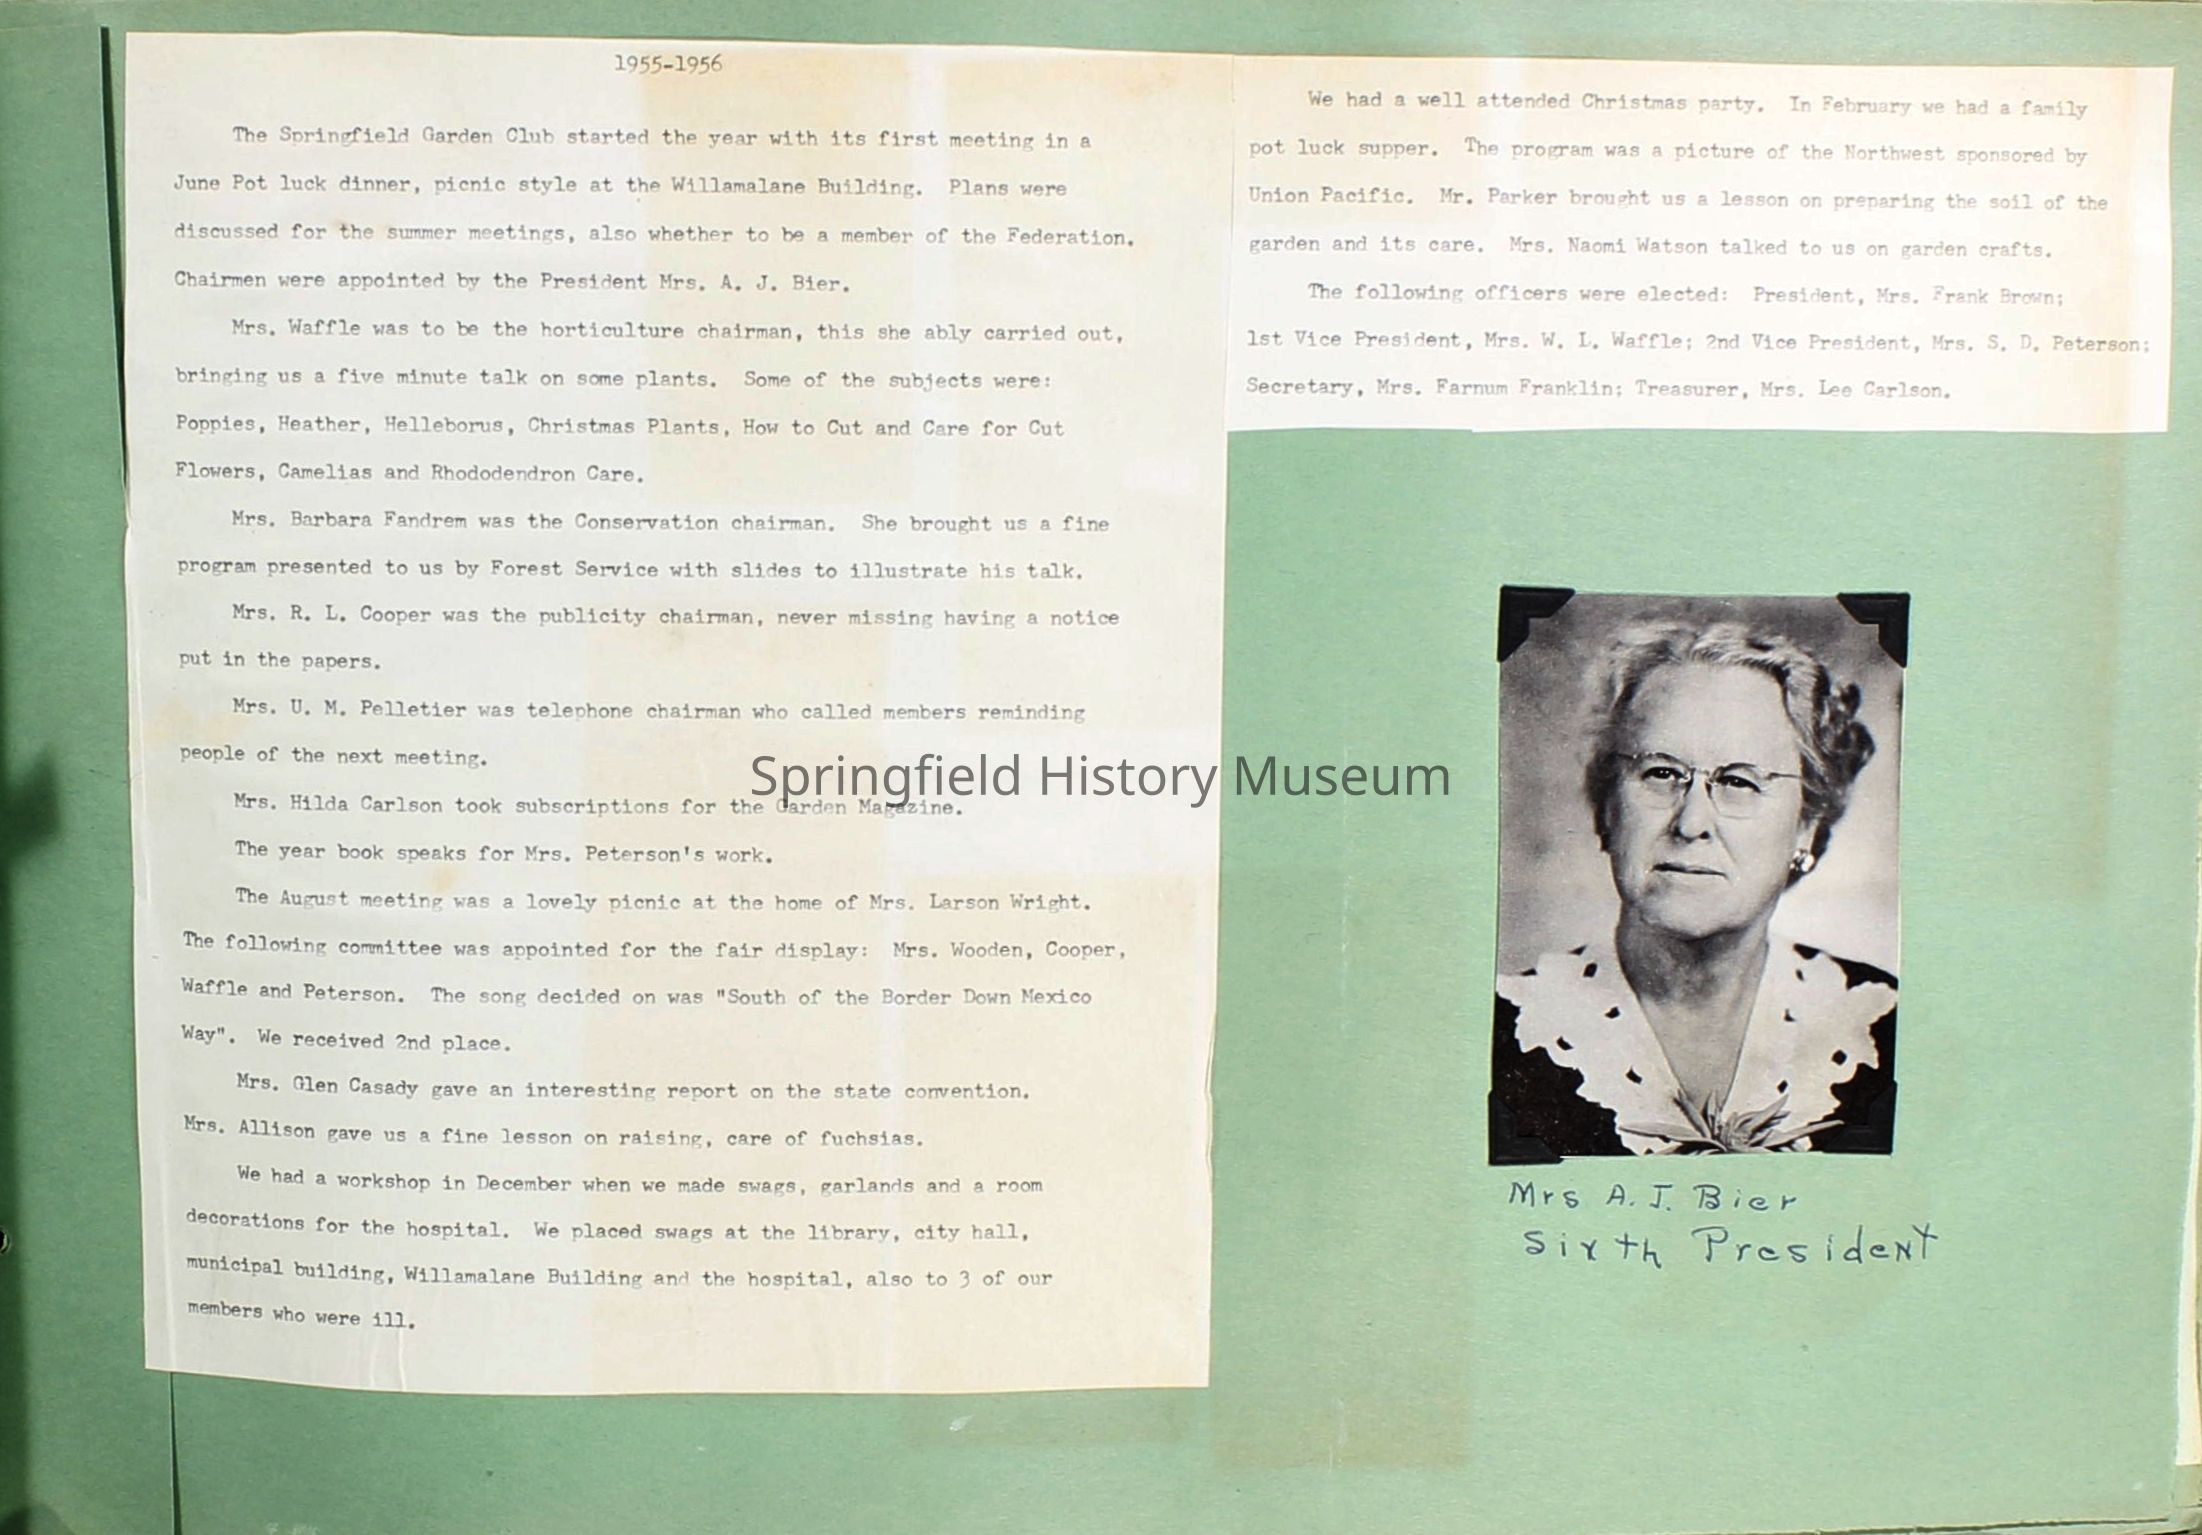 1955-1956
The Springfield Garden Club started the year with its first meeting in a
June Pot luck dinner, picnic style at the Willamalane Building. Plans were
discussed for the summer meetings, also whether to be a member of the Federation.
Chairmen were appointed by the President Mrs. A. J. Bier.
Mrs. Waffle was to be the horticulture chairman, this she ably carried out,
bringing us a five minute talk on some plants. Some of the subjects were:
Poppies, Heather, Helleborus, Christmas Plants, How to Cut and Care for Cut
Flowers, Camelias and Rhododendron Care.
Mrs. Barbara Fandrem was the Conservation chairman. She brought us a fine
program presented to us by Forest Service with slides to illustrate his talk.
Mrs. R. L. Cooper was the publicity chairman, never missing having a notice
put in the papers.
Mrs. U. M. Pelletier was telephone chairman who called members reminding
people of the next meeting.
Mrs. Hilda Carlson took subscriptions for the Garden Magazine.
The year book speaks for Mrs. Peterson's work.
The August meeting was a lovely picnic at the home of Mrs. Larson Wright.
The following committee was appointed for the fair display: Mrs. Wooden, Cooper,
Waffle and Peterson. The song decided on was "South of the Border Down Mexico
Way". We received 2nd place.
Mrs. Glen Casady gave an interesting report on the state convention.
Mrs. Allison gave us a fine lesson on raising, care of fuchsias.
We had a workshop in December when we made swags, garlands and a room
decorations for the hospital. We placed swags at the library, city hall,
municipal building, Willamalane Building and the hospital, also to 3 of our
members who were ill.
We had a well attended Christmas party. In February we had a family
pot luck supper. The program was a picture of the Northwest sponsored by
Union Pacific. Mr. Parker brought us a lesson on preparing the soil of the
garden and its care. Mrs. Naomi Watson talked to us on garden crafts.
The following officers were elected: President, Mrs. Frank Brown;
1st Vice President, Mrs. W. L. Waffle; 2nd Vice President, Mrs. S. D. Peterson;
Secretary, Mrs. Farnum Franklin; Treasurer, Mrs. Lee Carlson.
Springfield History Museum
Mrs A. J. Bier
Sixth President